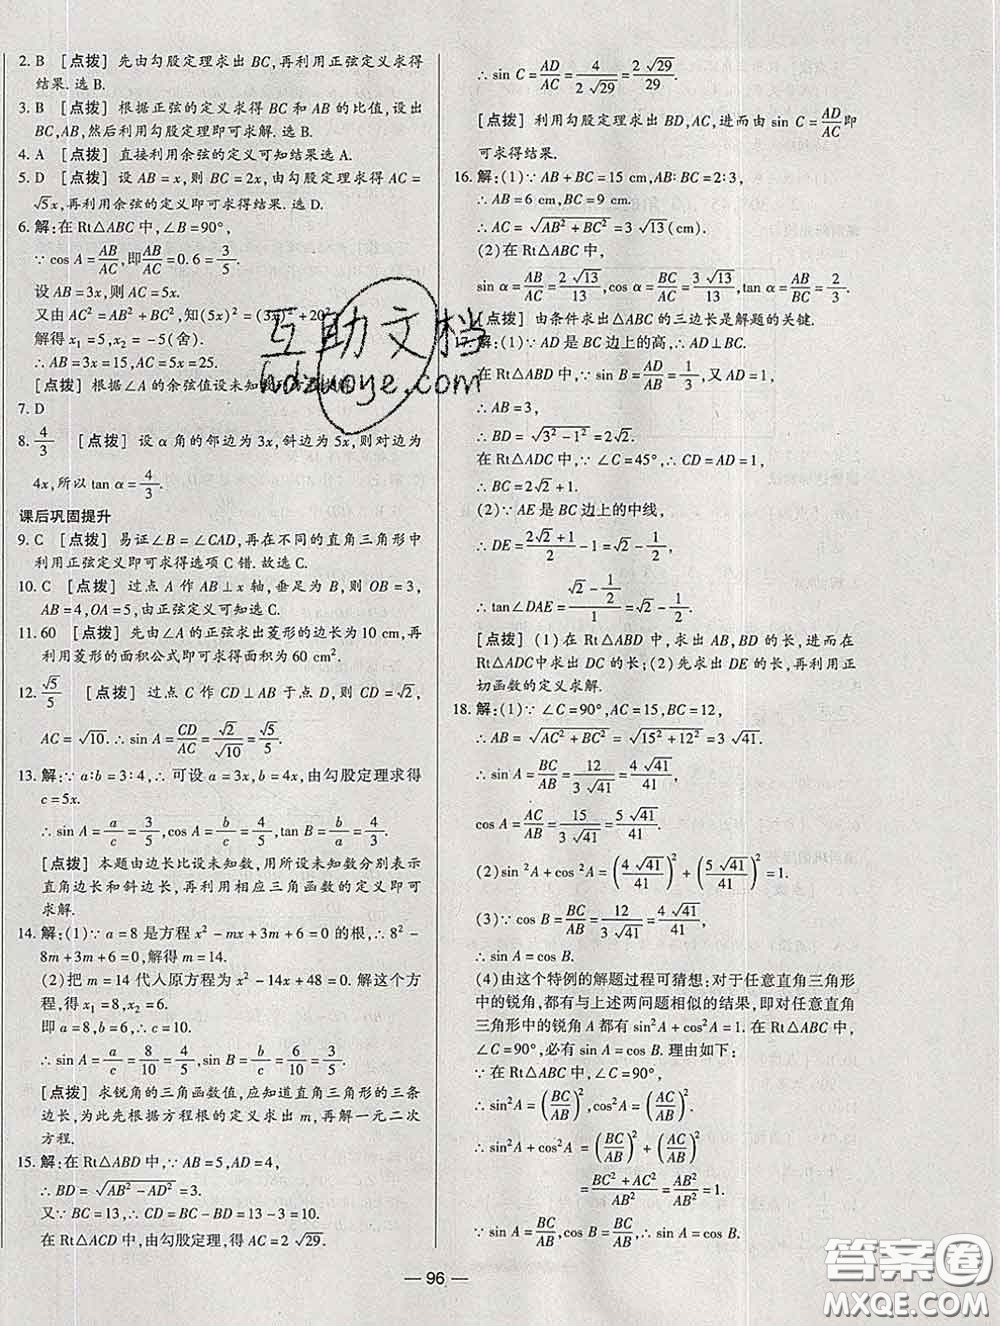 2. B [点拨] 先由勾股定理求出 BC,再利用正弦定义求得
结果. 选 B.
3. B [点拨] 根据正弦的定义求得 BC 和 AB 的比值,设出
BC,AB,然后利用勾股定理即可求解. 选 B.
4. A [点拨] 直接利用余弦的定义可知结果选 A.
5. D [点拨] 设 AB=x,则 BC=2x,由勾股定理求得 AC=
√5x,再利用余弦的定义即可求得结果. 选 D.
6. 解:在 Rt△ABC 中,∠B=90°,
∵cos A=AB/AC,即AB/AC=0.6=3/5.
设 AB=3x,则 AC=5x.
又由 AC²=AB²+BC²,知(5x)²=(3x)²+20²
解得 x₁=5,x₂=-5(舍).
∴AB=3x=15,AC=5x=25.
[点拨] 根据∠A 的余弦值设未知
7. D
8. 4/3 [点拨] 设 α 角的邻边为 3x,斜边为 5x,则对边为
4x,所以 tan α=4/3.
课后巩固提升
9. C [点拨] 易证∠B=∠CAD,再在不同的直角三角形中
利用正弦定义即可求得选项 C 错. 故选 C.
10. C [点拨] 过点 A 作 AB⊥x 轴,垂足为 B,则 OB=3,
AB=4,OA=5,由正弦定义可知选 C.
11. 60 [点拨] 先由∠A 的正弦求出菱形的边长为 10 cm,再
利用菱形的面积公式即可求得面积为 60 cm².
12. √5/5 [点拨] 过点 C 作 CD⊥AB 于点 D,则 CD=√2,
AC=√10. ∴sin A=CD/AC=√2/√10=√5/5.
13. 解:∵a∶b=3∶4,∴可设 a=3x,b=4x,由勾股定理求得
c=5x.
∴sin A=a/c=3/5,cos A=b/c=4/5,tan B=b/a=4/3.
[点拨] 本题由边长比设未知数,用所设未知数分别表示
直角边长和斜边长,再利用相应三角函数的定义即可
求解.
14. 解:(1)∵a=8 是方程 x²-mx+3m+6=0 的根,∴8²-
8m+3m+6=0,解得 m=14.
(2)把 m=14 代入原方程为 x²-14x+48=0. 解这个方
程,得 x₁=8,x₂=6.
即 a=8,b=6,∴c=10.
∴sin A=a/c=8/10=4/5,sin B=b/c=6/10=3/5.
[点拨] 求锐角的三角函数值,应知道直角三角形的三条
边长,为此先根据方程根的定义求出 m,再解一元二次
方程.
15. 解:在 Rt△ABD 中,∵AB=5,AD=4,
∴BD=√(AB²-AD²)=3.
又∵BC=13,∴CD=BC-BD=13-3=10.
在 Rt△ACD 中,由勾股定理,得 AC=2√29.
∴sin C=AD/AC=4/(2√29)=2√29/29.
[点拨] 利用勾股定理求出 BD,AC,进而由 sin C=AD/AC即
可求得结果.
16. 解:(1)∵AB+BC=15 cm,AB∶BC=2∶3,
∴AB=6 cm,BC=9 cm.
∴AC=√(AB²+BC²)=3√13(cm).
(2)在 Rt△ABC 中,
sin α=AB/AC=2√13/13,cos α=BC/AC=3√13/13,tan α=AB/BC=2/3.
[点拨] 由条件求出△ABC 的三边长是解题的关键.
解:(1)∵AD 是 BC 边上的高,∴AD⊥BC.
在 Rt△ABD 中,∵sin B=AD/AB=1/3,又 AD=1,
∴AB=3,
∴BD=√(3²-1²)=2√2.
在 Rt△ADC 中,∵∠C=45°,∴CD=AD=1,
∴BC=2√2+1.
(2)∵AE 是 BC 边上的中线,
∴DE=(2√2+1)/2-1=√2-1/2,
∴tan∠DAE=(√2-1/2)/1=√2-1/2.
[点拨] (1)在 Rt△ABD 中,求出 AB,BD 的长,进而在
Rt△ADC中求出 DC 的长;(2)先求出 DE 的长,再利用正
切函数的定义求解.
18. 解:(1)∵∠C=90°,AC=15,BC=12,
∴AB=√(AC²+BC²)=√(15²+12²)=3√41.
∴sin A=BC/AB=12/(3√41)=4√41/41.
cos A=AC/AB=15/(3√41)=5√41/41.
(2)sin²A+cos²A=(4√41/41)²+(5√41/41)²=1.
(3)∵cos B=BC/AB=12/(3√41)=4√41/41.
∴sin A=cos B.
(4)由这个特例的解题过程可猜想:对于任意直角三角形
中的锐角,都有与上述两问题相似的结果,即对任意直角
三角形中的锐角 A 都有 sin²A+cos²A=1. 在 Rt△ABC 中,
∠C=90°,必有 sin A=cos B. 理由如下:
∵在 Rt△ABC 中,∠C=90°,
∴sin²A=(BC/AB)²,cos²A=(AC/AB)².
∴sin²A+cos²A=(BC/AB)²+(AC/AB)²
=(BC²+AC²)/AB²=AB²/AB²=1.
∵sin A=BC/AB,cos B=BC/AB,∴sin A=cos B.
— 96 —
互助文档
hdzuoye.com
答案圈
MXQE.COM